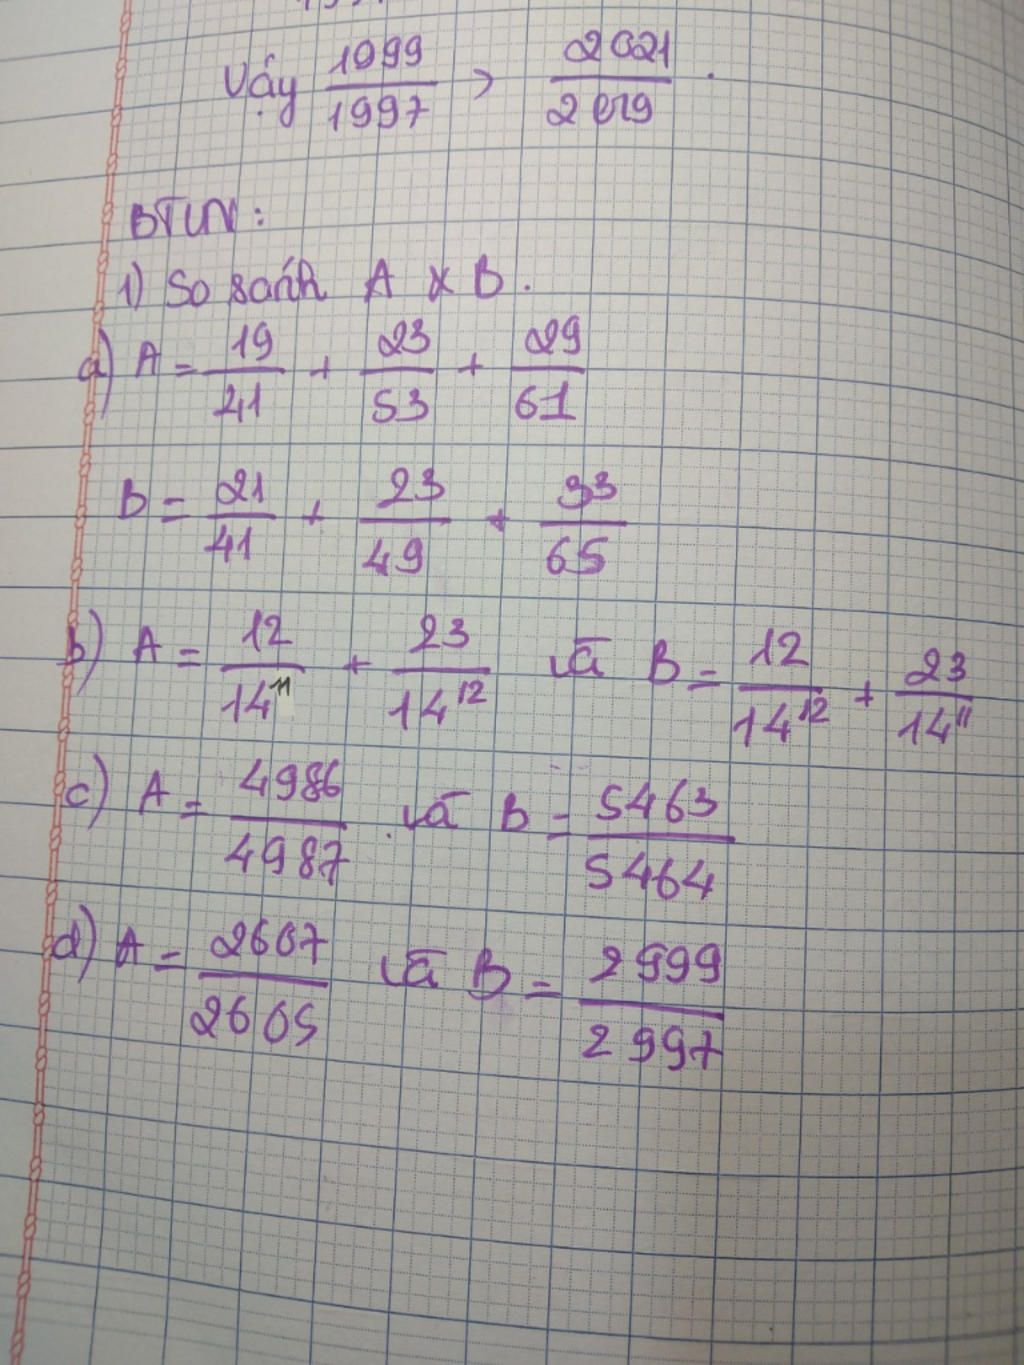 Vậy 1999/1997 > 2021/2019.
BTVN:
1) So sánh A & B.
a) A = 19/41 + 23/53 + 29/61
B = 21/41 + 23/49 + 33/65
b) A = 12/14^11 + 23/14^12 và B = 12/14^12 + 23/14^11
c) A = 4986/4987 và B = 5463/5464
d) A = 2607/2605 và B = 2999/2997